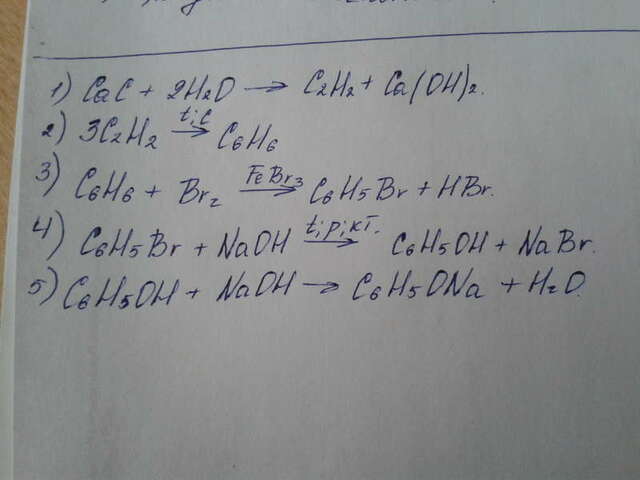 1) CaC + 2H2O → C2H2 + Ca(OH)2.
2) 3C2H2 t;C → C6H6
3) C6H6 + Br2 FeBr3 → C6H5Br + HBr.
4) C6H5Br + NaOH t;p;кт. → C6H5OH + NaBr.
5) C6H5OH + NaOH → C6H5ONa + H2O.